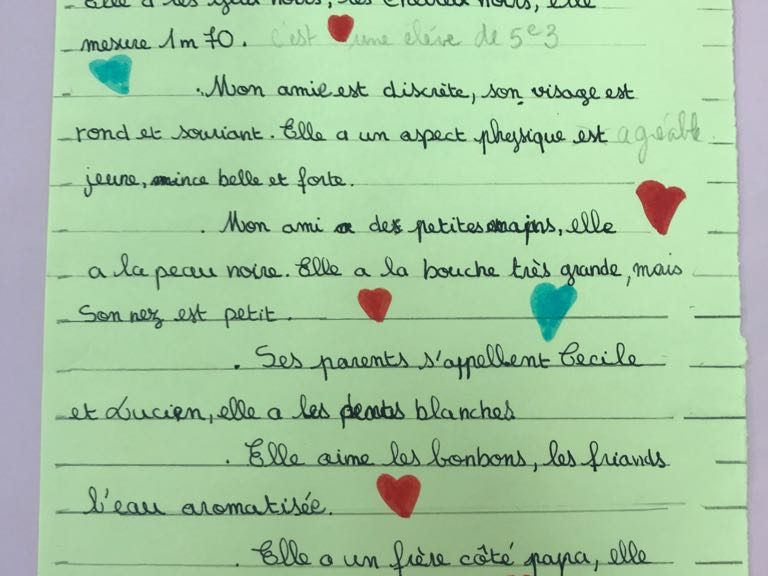 Elle a les yeux noirs, les cheveux noirs, elle
mesure 1m70. c'est une elève de 5e3
.Mon amie est discrète, son visage est
rond et souriant. Elle a un aspect physique est agéable
jeune, mince belle et forte.
. Mon ami a des petites mains, elle
a la peau noire. Elle a la bouche très grande, mais
Son nez est petit.
. Ses parents s'appellent Cecile
et Lucien, elle a les dents blanches
. Elle aime les bonbons, les friands
l'eau aromatisée.
. Elle a un frère côté papa, elle